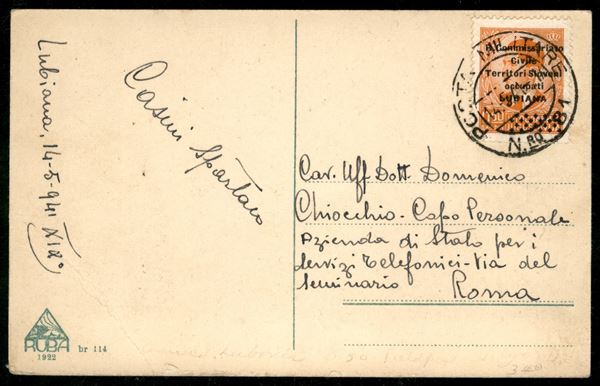 Lubiana, 14-5-941 XIXº
Casini Spartaco
R. Commissariato
Civile
Territori Sloveni
occupati
LUBIANA
POSTA MILITARE
N.RO 81
Cav. Uff. Dott. Domenico
Chiocchio - Capo Personale
Azienda di Stato per i
Servizi Telefonici - Via del
Seminario Roma
RUBA
1922
br 114